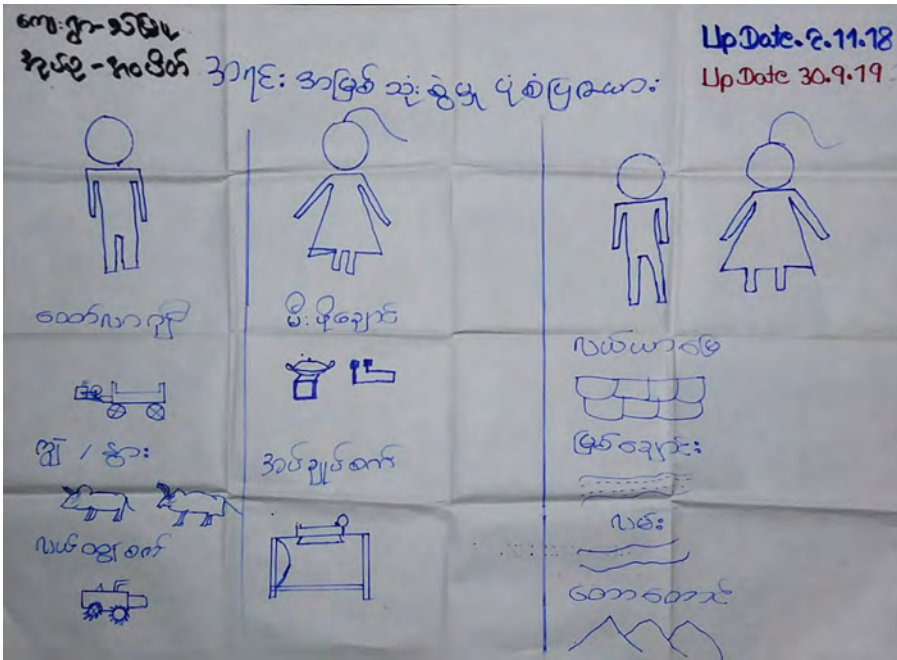 ကျေးရွာ-
အုပ်စု-
အရင်းအမြစ်သုံးစွဲမှုပုံစံပြဇယား
Up Date. 2.11.18
Up Date 30.9.19
ထော်လာဂျီ
ကျွဲ / နွား
လယ်ထွန်စက်
မီးဖိုချောင်
အပ်ချုပ်စက်
လယ်ယာမြေ
မြစ်ချောင်း
လမ်း
တောတောင်